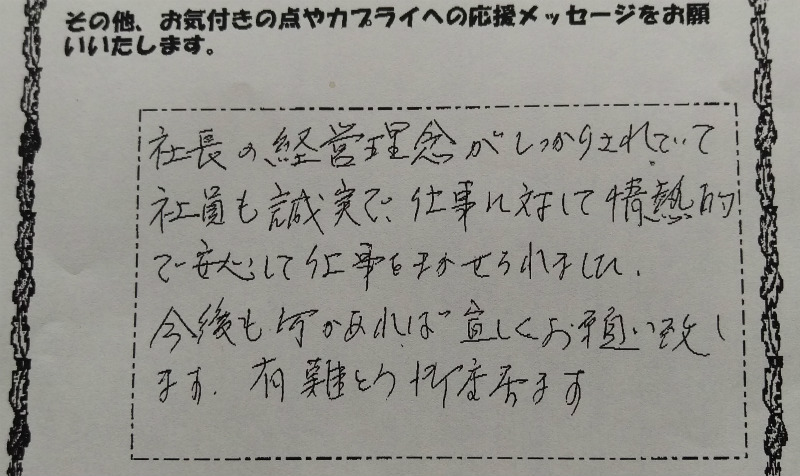 その他、お気付きの点やカプライへの応援メッセージをお願
いいたします。
社長の経営理念がしっかりされていて
社員も誠実で、仕事に対して情熱的
で安心して仕事をまかせられました。
今後も何かあれば宜しくお願い致し
ます。有難とう御座居ます